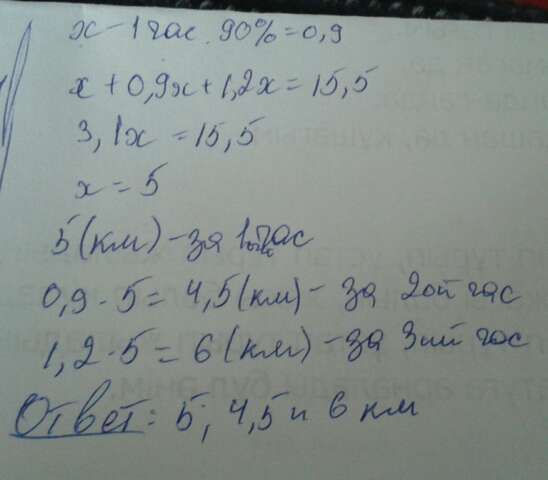 x - 1 час. 90% = 0,9
x + 0,9x + 1,2x = 15,5
3,1x = 15,5
x = 5
5 (км) - за 1ый час
0,9 · 5 = 4,5 (км) - за 2ой час
1,2 · 5 = 6 (км) - за 3ий час
Ответ: 5; 4,5 и 6 км